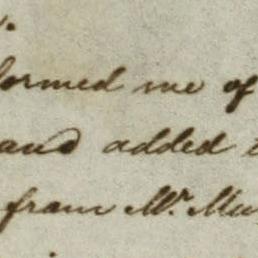 formed me of
and added
from Mr. Mu